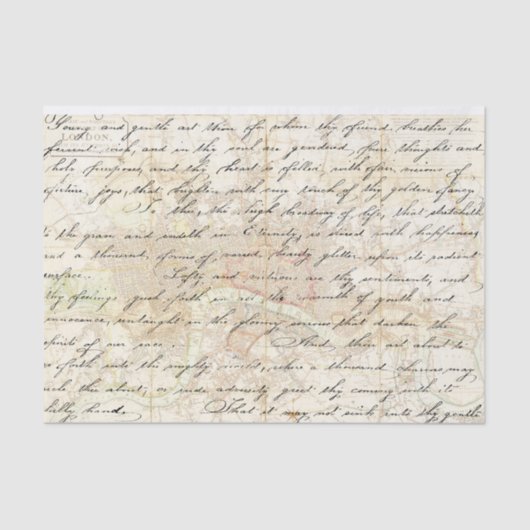 Young and gentle art thou for whom thy friend breathes her
LONDON.
fervent wish, and in thy soul are gendered, pure thoughts and
holy purposes, and thy heart is filled, with fair visions of
future joys, that brighten with every touch of thy golden fancy
To thee, the high broadway of life, that stretcheth
to the grave and endeth in Eternity, is strewed with happiness
and a thousand, forms of varied beauty glitter upon its radiant
surface. Lofty and virtuous are thy sentiments, and
thy feelings gush forth in all the warmth of youth and
innocence, untaught in the gloomy that darken the
spirits of our race And thou art about to
go forth into the mighty world, where a thousand may
thee about, or rude adversity greet thy coming with its
hand. That it may not sink into thy gentle